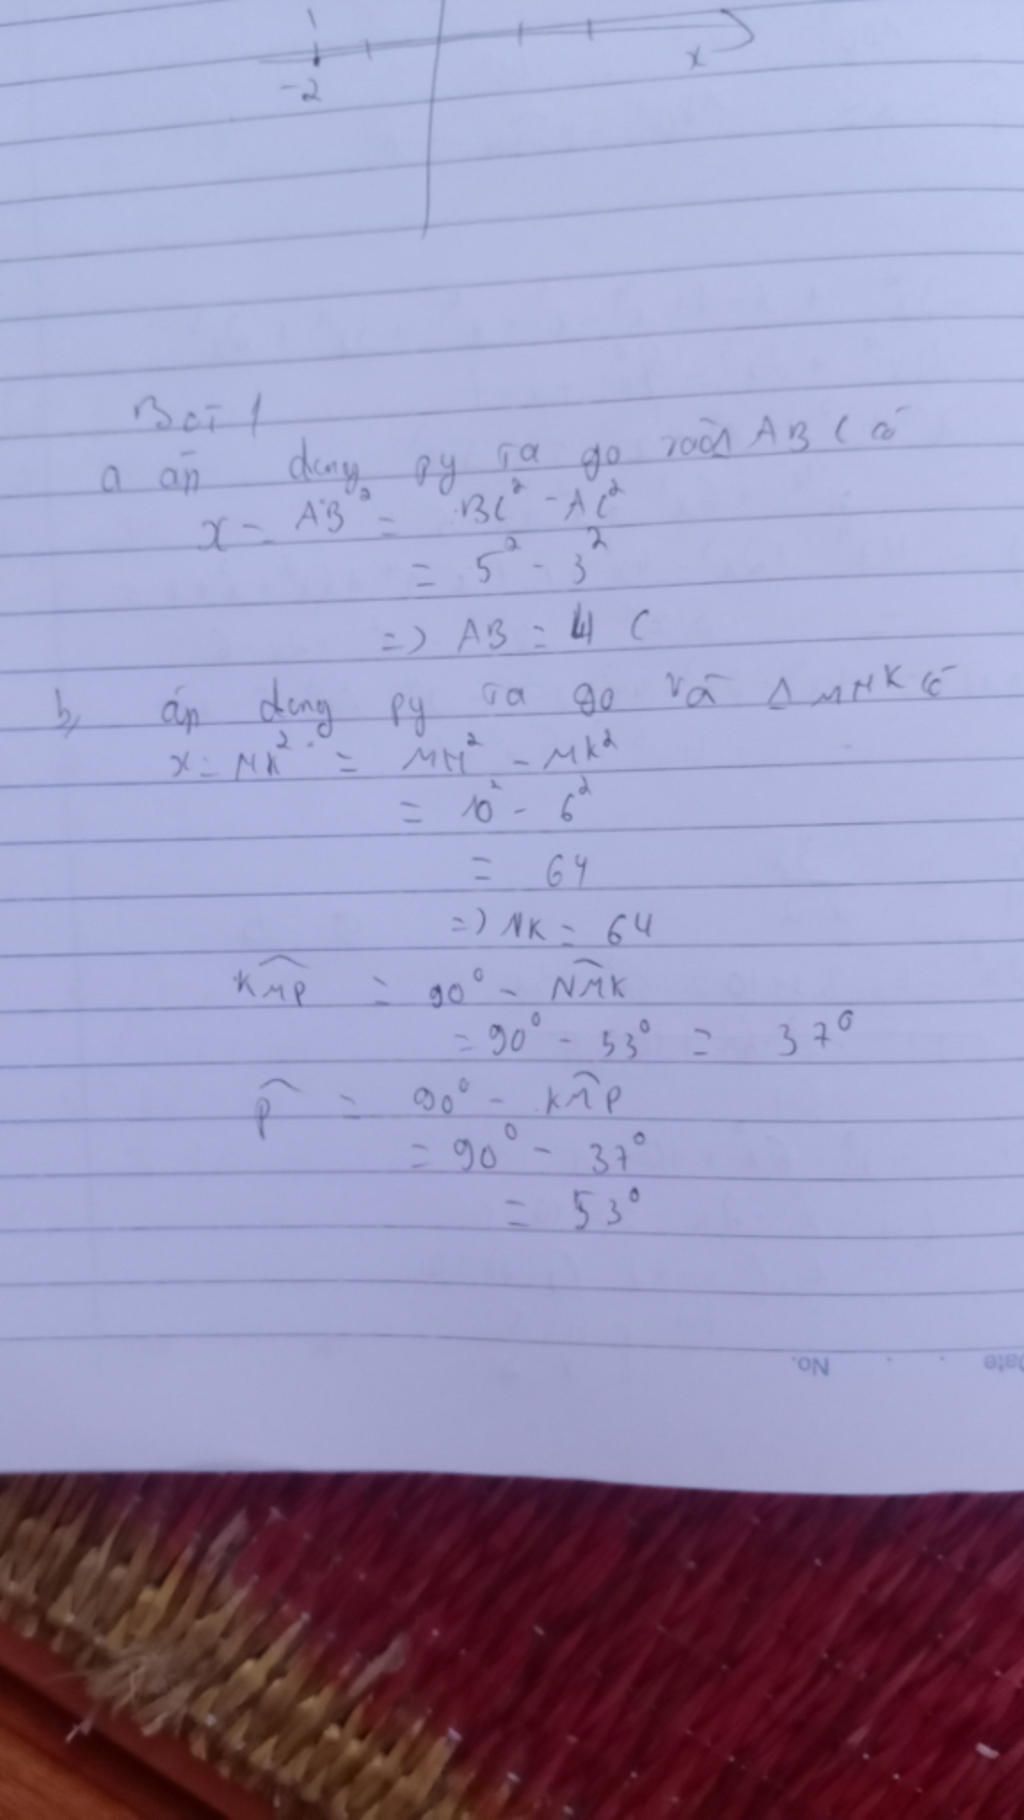 -2
x
Bài 1
a áp dụng py ta go vào Δ ABC có
x = AB² = BC² - AC²
= 5² - 3²
=> AB = 4 (
b, áp dụng py ta go và Δ MNK có
x = NK² = MN² - MK²
= 10² - 6²
= 64
=> NK = 64
KM̂P = 90° - NM̂K
= 90° - 53° = 37°
P̂ = 90° - KM̂P
= 90° - 37°
= 53°
Date No.